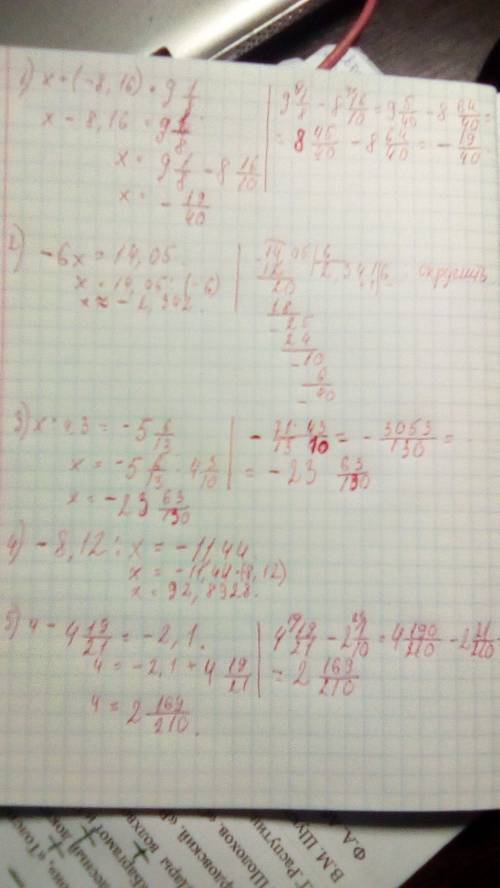 1) x + (-8,16) = 9 1/8
x - 8,16 = 9 1/8
x = 9 1/8 - 8 16/10
x = - 19/40
9 1/8 - 8 16/10 = 9 5/40 - 8 64/40 =
= 8 45/40 - 8 64/40 = - 19/40
2) -6x = 14,05
x = 14,05 : (-6)
x ≈ -2,342.
14,05 | 6
12
20
18
25
24
10
6
40
округлить
3) x : 4,3 = -5 6/13
x = -5 6/13 · 4 3/10
x = -23 63/130
- 71·43/13·10 = - 3053/130 =
= -23 63/130
4) -8,12 : x = -11,44
x = -11,44·(-8,12)
x = 92,8928.
5) y - 4 19/21 = -2,1.
y = -2,1 + 4 19/21
y = 2 169/210.
4 19/21 - 2 1/10 = 4 190/210 - 2 21/210
= 2 169/210
В.М. Шу
Г. Распутин
Шолохов.